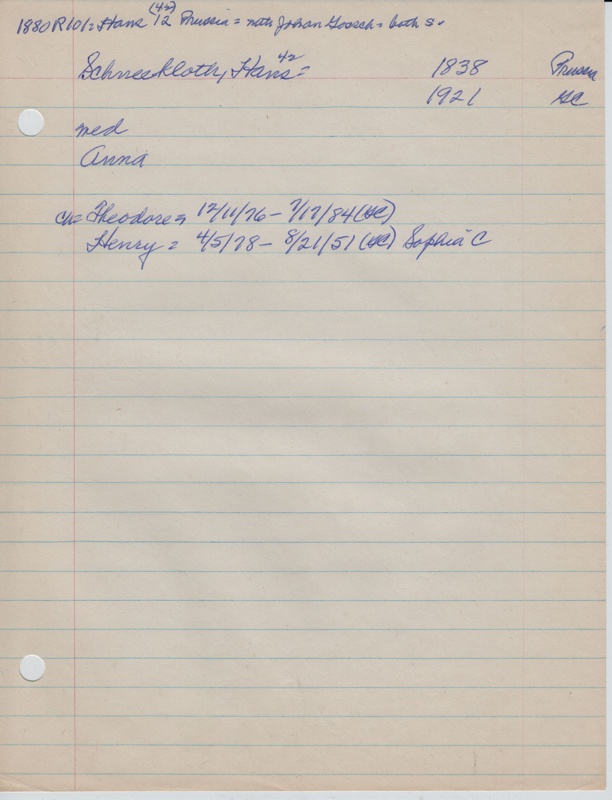 1880 R101= Hans (42) 12 Prussia = with Johan Goosch = both S.
Schneekloth, Hans 42 = 1838 Prussia
1921 SC
med
Anna
ch= Theodore = 12/11/76 - 7/17/84 (SC)
Henry = 4/5/78 - 8/21/51 (SC) Sophia C